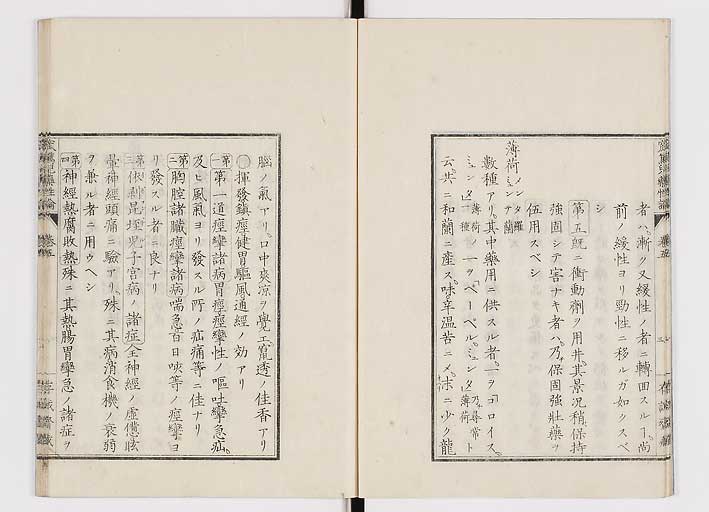 者ハ漸ク又緩性ノ者ニ轉囬スルヿ尚
前ノ緩性ヨリ勁性ニ移ルガ如クスベ
シ
第五既ニ衝動劑ヲ用井其景况稍保持
強固シテ害ナキ者ハ乃保固強壯藥ヲ
伍用スベシ
薄荷 メンタ羅 ミュンテ蘭
數種アリ其中藥用ニ供スル者一ヲコロイス
ミュンタ 薄荷一種 一ヲペーペルミュンタ 乃尋常薄荷 ト
云共ニ和蘭ニ産ス味辛温苦ニメ沫ニ少ク龍
腦ノ氣アリ口中爽涼ヲ覺エ竄透ノ佳香アリ
揮發鎮痙健胃驅風通經ノ効アリ
第一 第一通痙攣諸病胃痙痙攣性ノ嘔吐攣急疝
及ヒ風氣ヨリ發スル所ノ疝痛等ニ佳ナリ
第二 胸腔諸臓痙攣諸病喘急百日咳等ノ痙攣ヨ
リ發スル者ニ良ナリ
第三 依剥昆垤児子宮病ノ諸症全神經ノ虚憊眩
暈神經頭痛ニ驗アリ殊ニ其病消食機ノ衰弱
ヲ兼ル者ニ用ウヘシ
第四 神經熱腐敗熱殊ニ其熱腸胃攣急ノ諸症ヲ